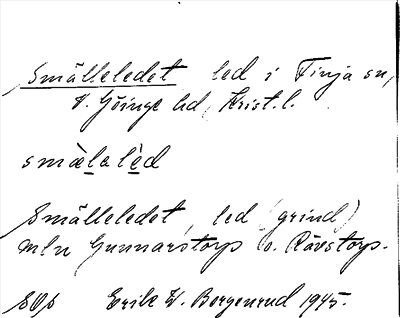 Smälleledet led i Finja sn,
V. Göinge hd, Krist. l.
smæ̀lalèd
Smälleledet led (grind)
mln Gunnarstorp o. Rävstorp.
SOs Erik W. Borgenrud 1945.